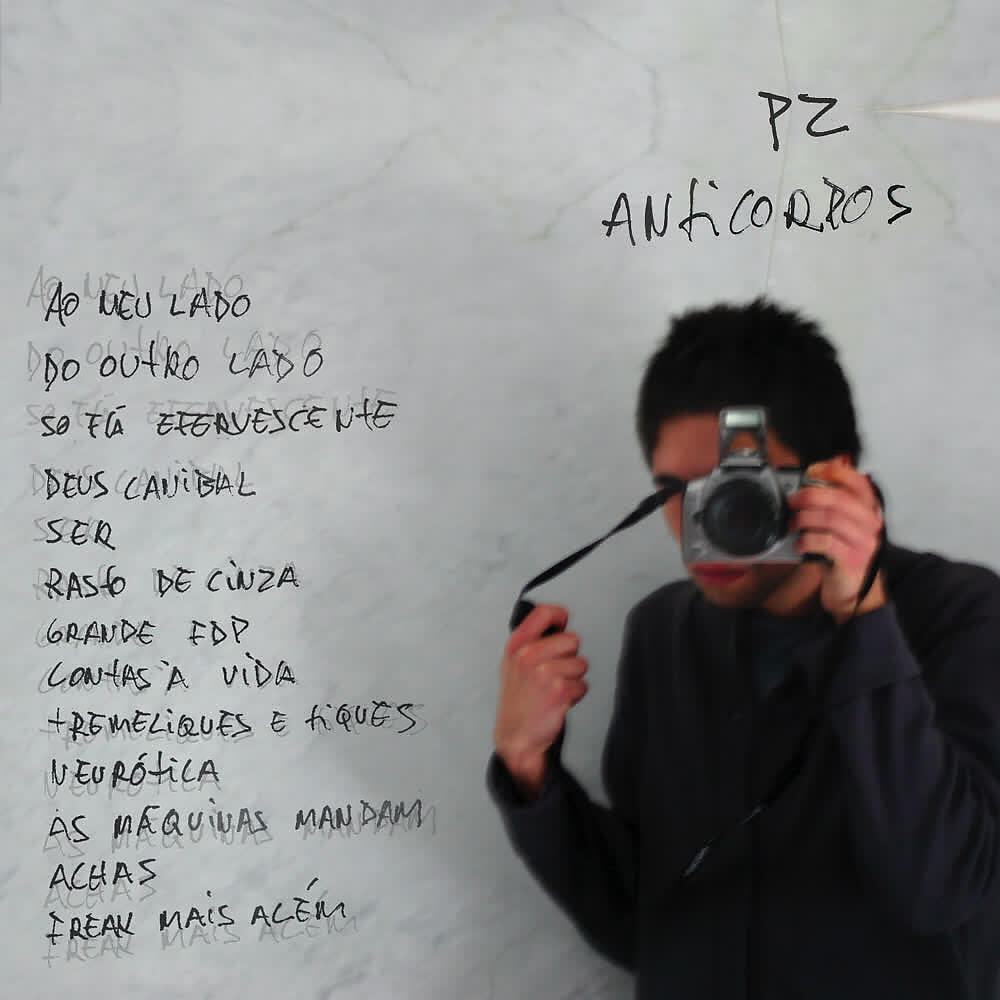 PZ
ANTiCORPOS
AO MEU LADO
DO OUTRO LADO
SO FÁ EFERVESCENTE
DEUS CANiBAL
SER
RASTO DE CiNZA
GRANDE FDP
CONTAS À VIDA
TREMELiQUES E TiQUES
NEURÓTiCA
AS MÁQUiNAS MANDAM
ACHAS
FREAK MAiS ALÉM